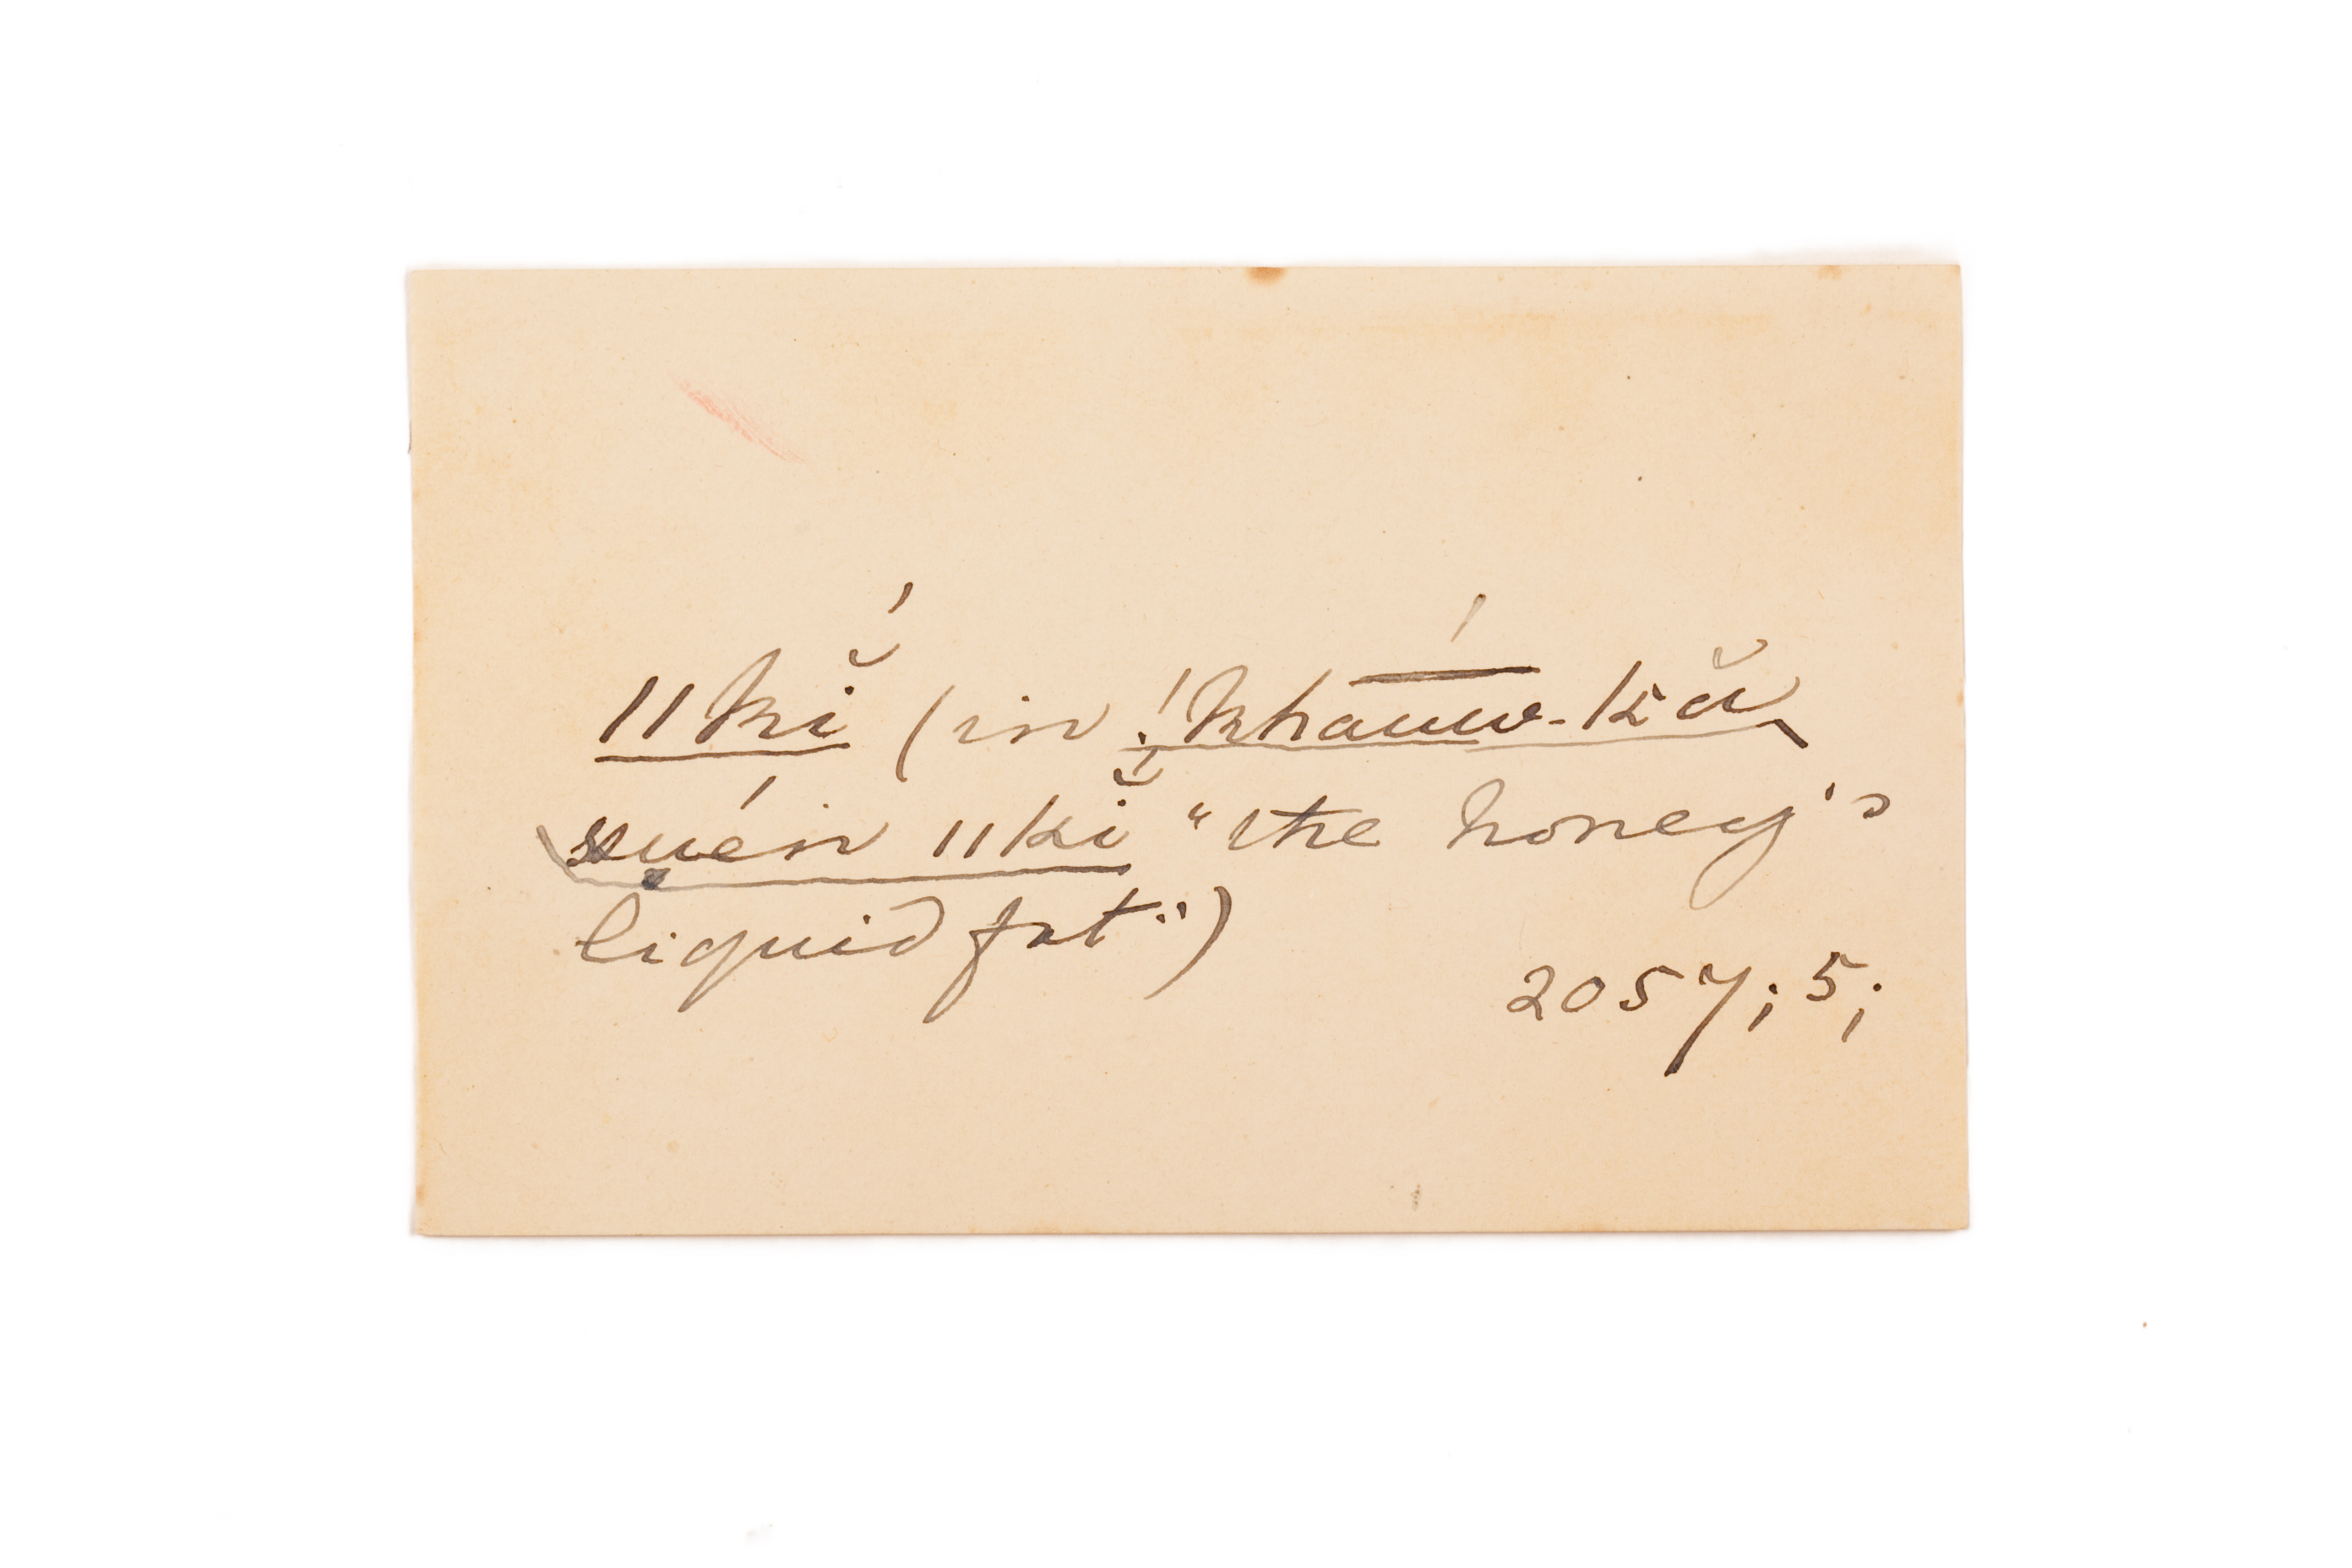 ǁkĭ́ (in !kha͞uúw-kă
suén ǁkĭ́ "the honey's
liquid fat")
2057; 5;